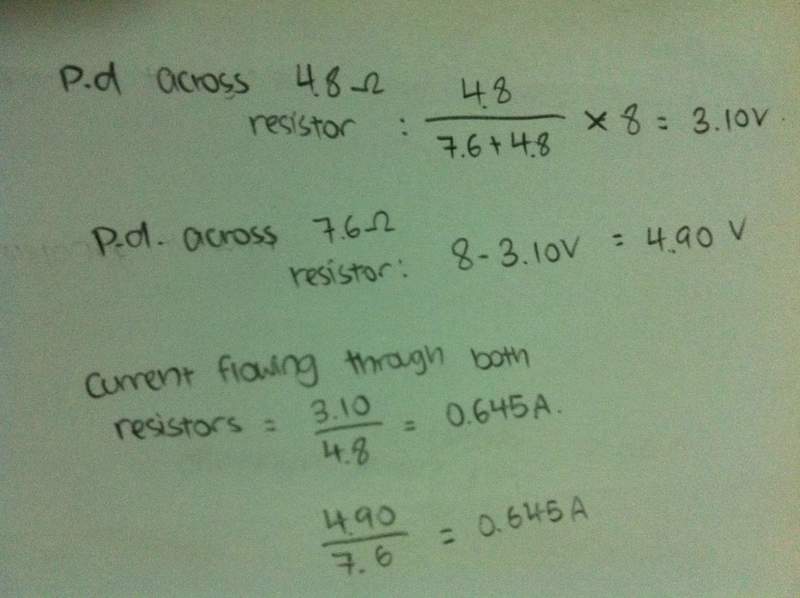 P.d across 4.8Ω
resistor : 4.8 / 7.6+4.8 × 8 = 3.10V.
P.d. across 7.6Ω
resistor: 8-3.10V = 4.90 V
Current flowing through both
resistors = 3.10 / 4.8 = 0.645A.
4.90 / 7.6 = 0.645A